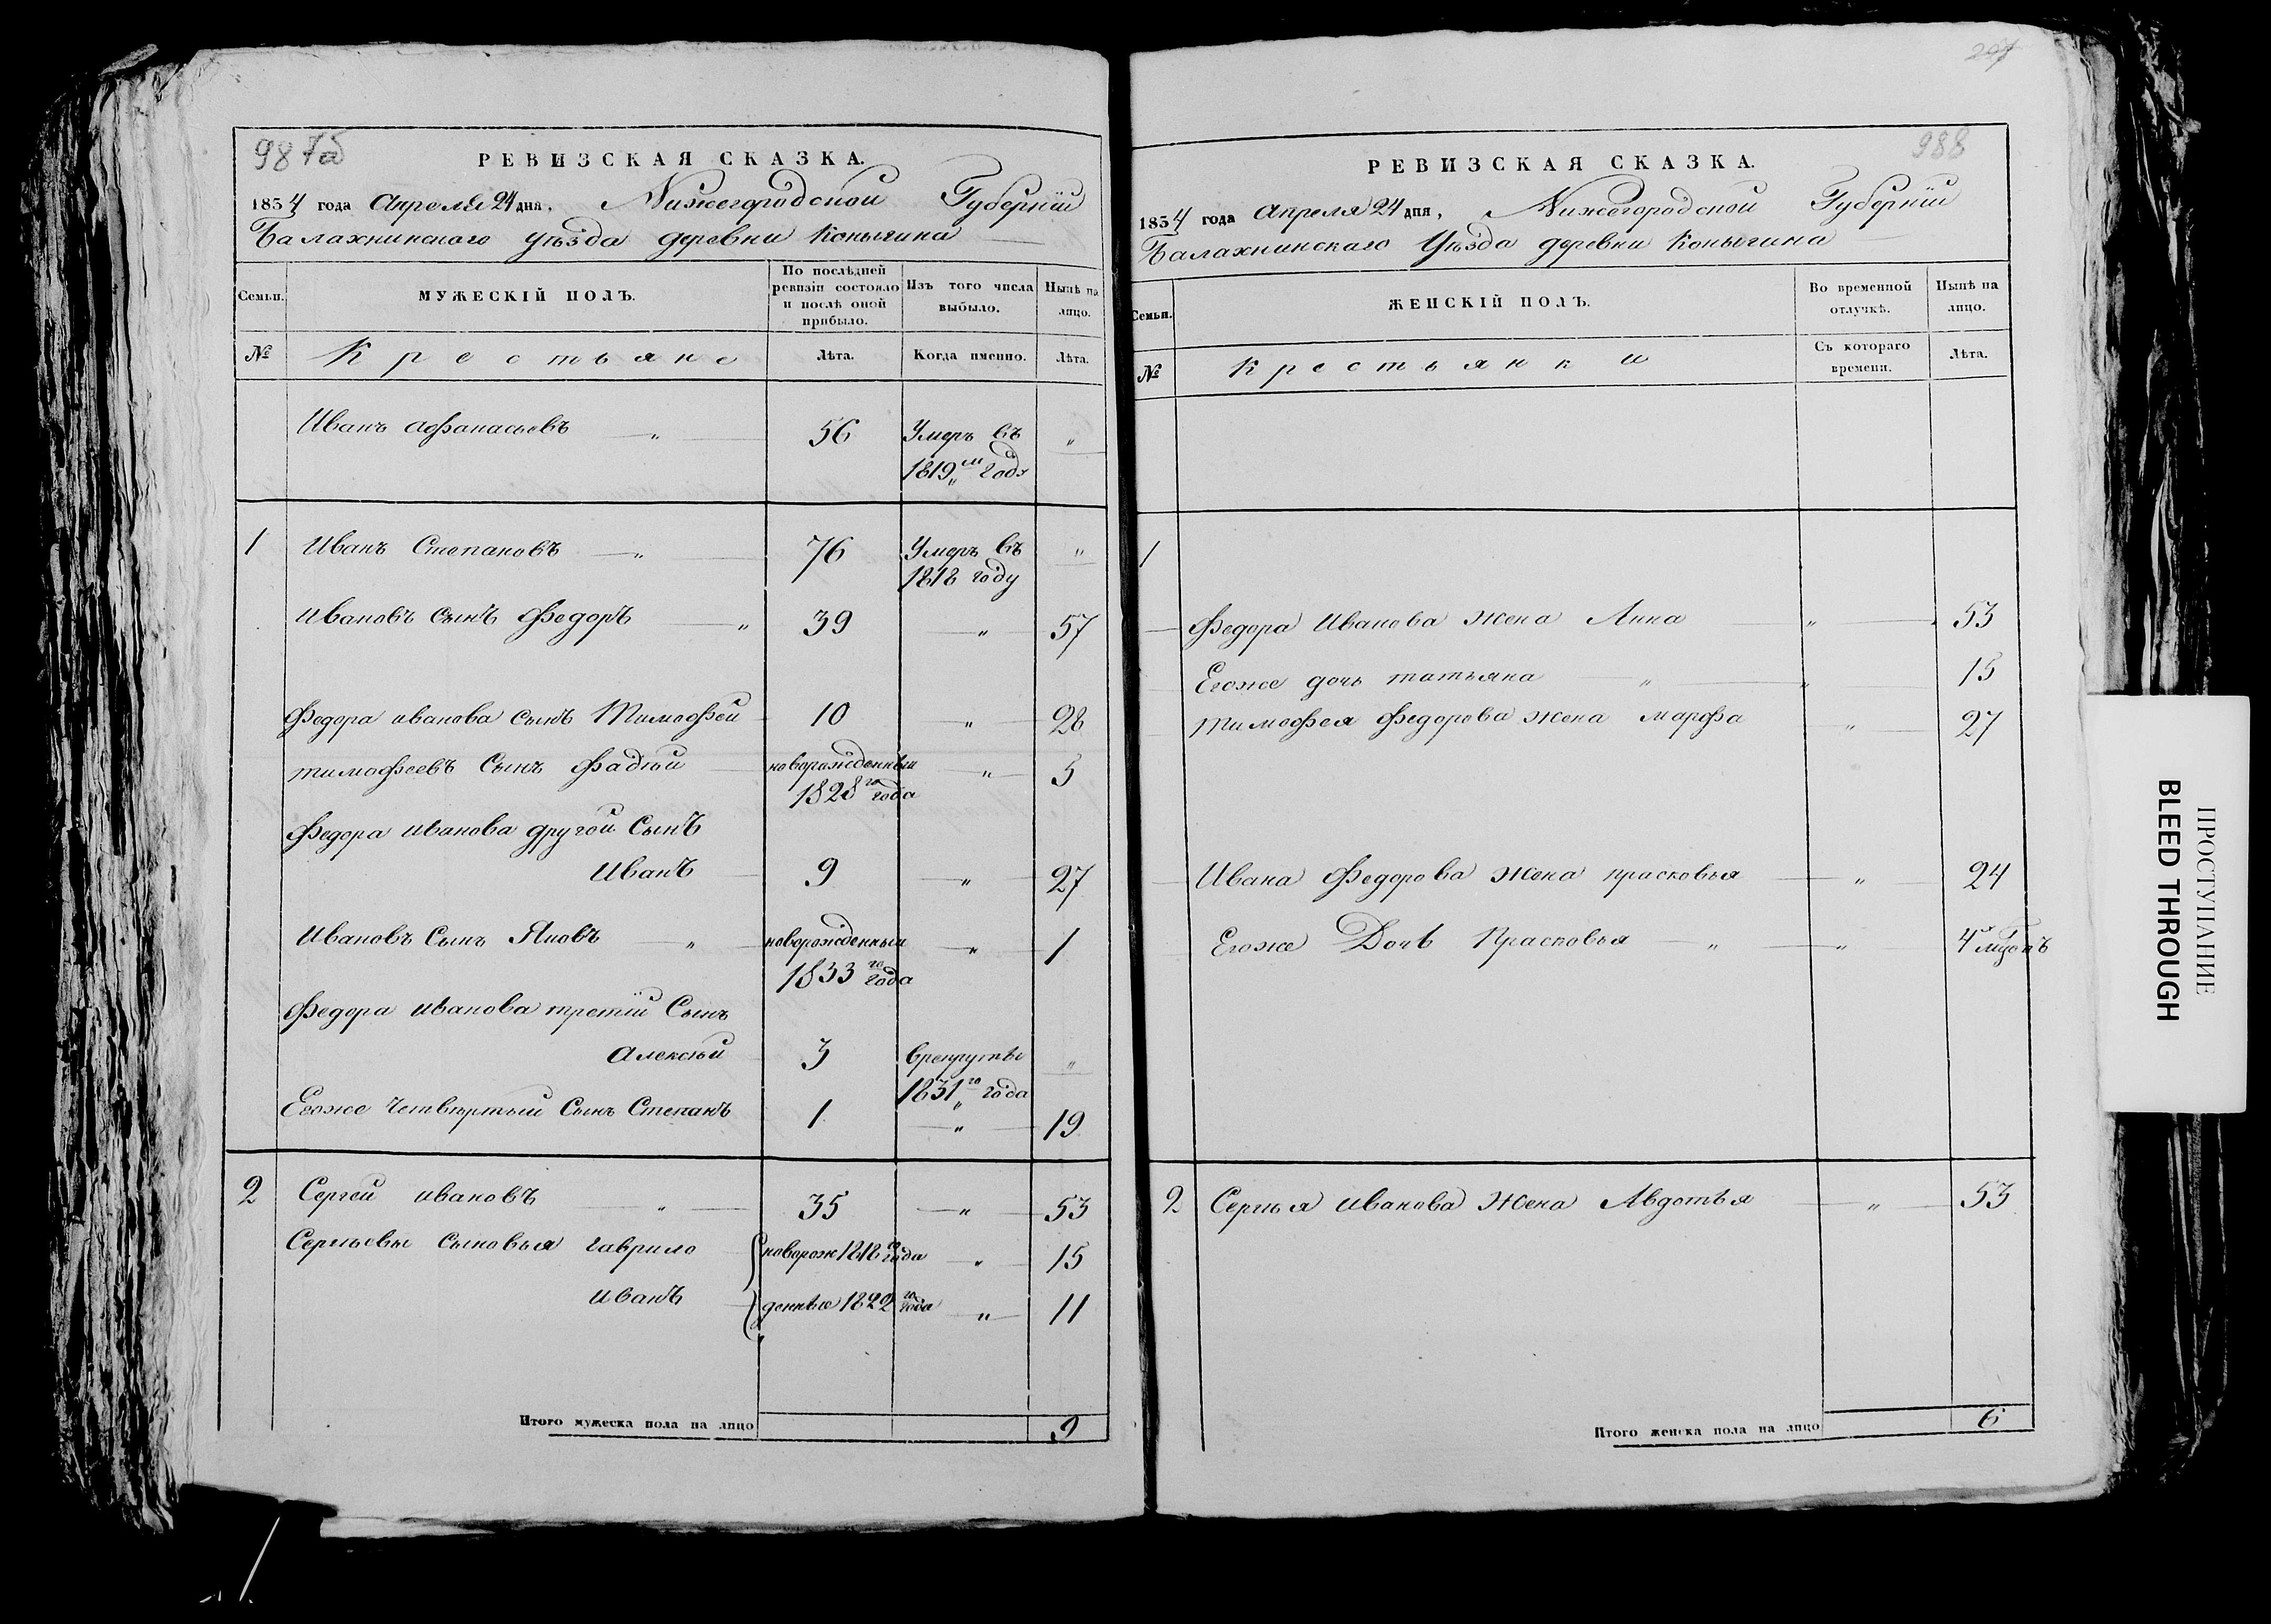 987а
РЕВИЗСКАЯ СКАЗКА.
1834 года Апреля 24 дня, Нижегородской Губернiи
Балахнинского уѣзда деревни Копыгина
Семьи.
МУЖЕСКІЙ ПОЛЪ.
По послѣдней ревизіи состояло и послѣ оной прибыло.
Изъ того числа выбыло.
Нынѣ на лицо.
№
Крестьяне
Лѣта.
Когда именно.
Лѣта.
Иванъ Афонасьевъ " 56 Умеръ въ "
1819м Годѣ
1 Иванъ Степановъ " 76 Умеръ въ "
1818 году
Ивановъ Сынъ Федоръ " 39 " 57
Федора иванова Сынъ Тимофей 10 " 28
тимофеевъ Сынъ Фадѣй новорожденный " 5
1828го года
Федора иванова другой Сынъ
Иванъ 9 " 27
Ивановъ Сынъ Яковъ " новорожденный " 1
1833го года
Федора иванова третiй Сынъ
Алексѣй 3 врекруты "
1831го года
Егоже Четвертый Сынъ Степанъ 1 " 19
2 Сергей ивановъ " 35 " 53
Сергѣевы Сыновья гаврило новорож 1818 года " 15
иванъ денные 1822го года " 11
Итого мужеска пола на лицо 9
207
988
РЕВИЗСКАЯ СКАЗКА.
1834 года Апреля 24 дня, Нижегородской Губернiи
Балахнинскаго Уѣзда деревни Копыгина
Семьи.
ЖЕНСКІЙ ПОЛЪ.
Во временной отлучкѣ.
Нынѣ на лицо.
№
Крестьянки
Съ котораго времени.
Лѣта.
1
Федора Иванова жена Анна " 53
Егоже дочь татьяна " " 15
тимофея Федорова жена марфа " 27
Ивана Федорова жена прасковья " 24
Егоже Дочь Прасковья " " 4 мцовъ
2 Сергѣя иванова Жена Авдотья " 53
Итого женска пола на лицо 6
ПРОСТУПАНИЕ
BLEED THROUGH